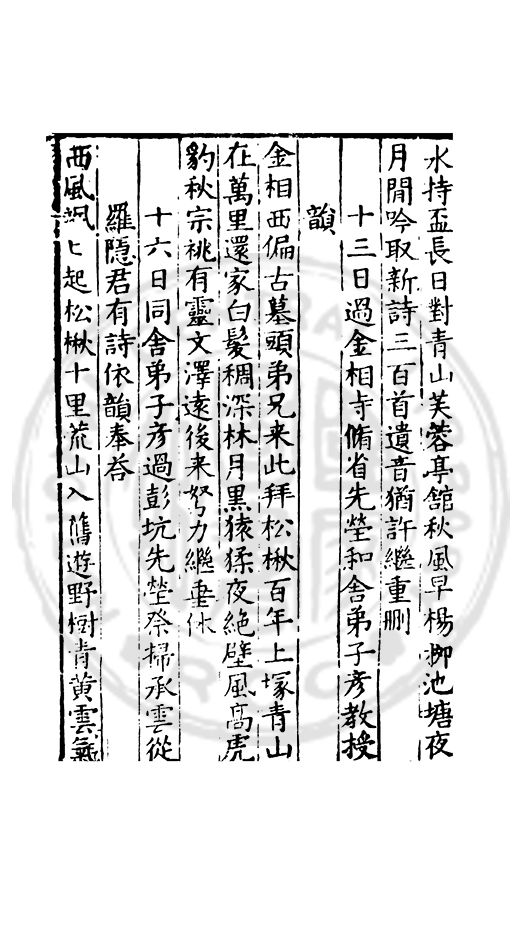 水持盃長日對青山芙蓉亭館秋風早楊柳池塘夜
月閒吟取新詩三百首遺音猶許繼重刪
十三日過金相寺脩省先塋和舍弟子彥教授
韻
金相西偏古墓頭弟兄来此拜松楸百年上塚青山
在萬里還家白髮稠深林月黑猿猱夜絶壁風髙虎
豹秋宗祧有靈文澤遠後来努力繼垂休
十六日同舍弟子彥過彭坑先塋祭掃承雲從
羅隱君有詩依韻奉荅
西風颯〻起松楸十里荒山入舊遊野樹青黄雲氣